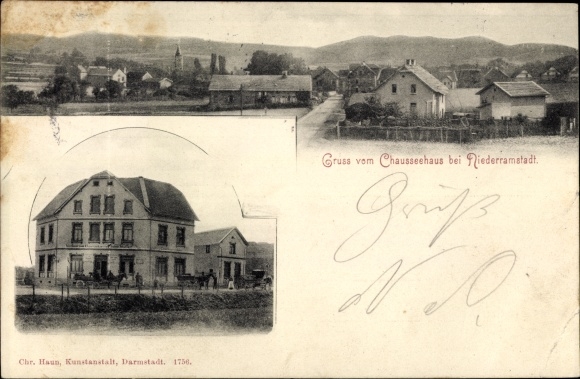 Gruss vom Chausseehaus bei Niederramstadt.
Gruß
Chr. Haun, Kunstanstalt, Darmstadt. 1756.